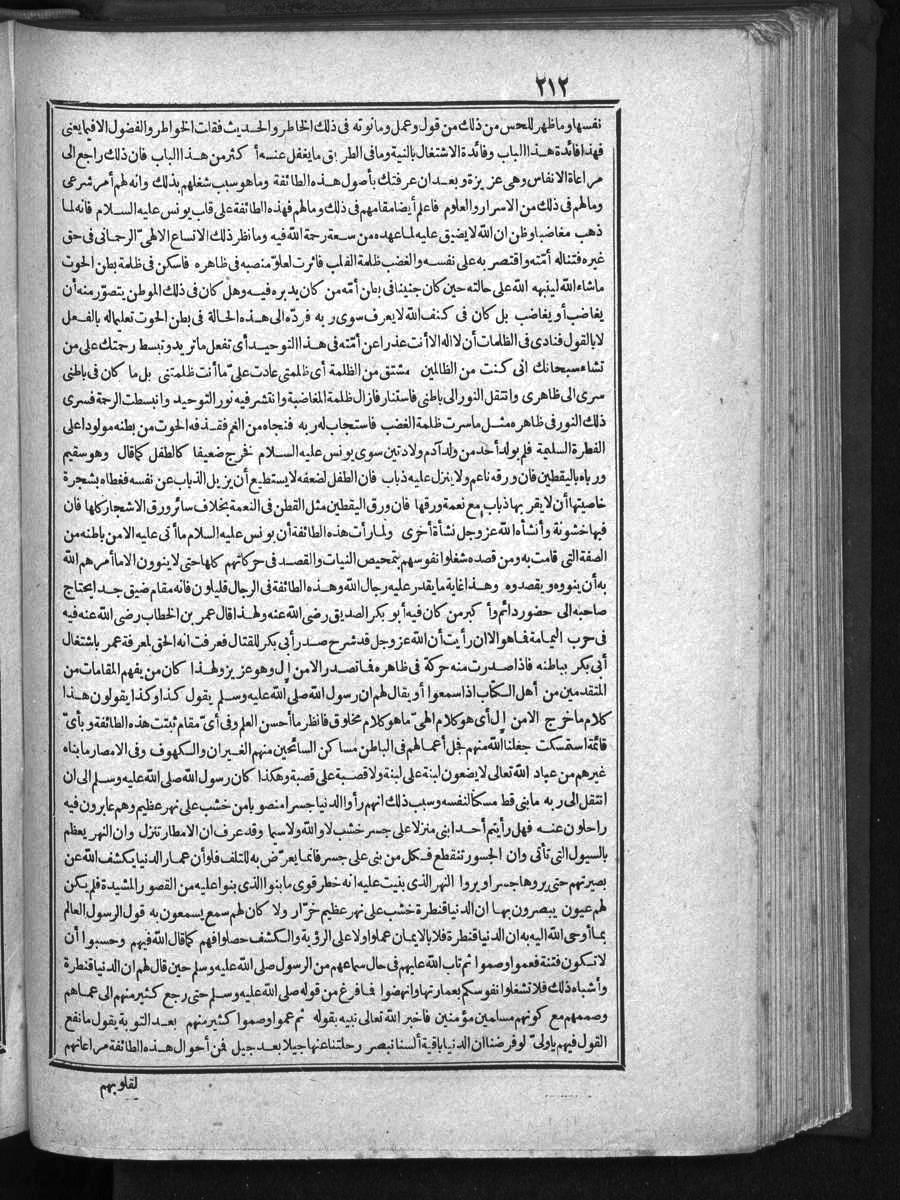 ٢١٢
نفسها وما ظهر للحس من ذلك من قول وعمل وما نوته فى ذلك الخاطر والحديث فقات الخواطر والفضول الا فيما يعنى
فهذا فائدة هذا الباب وفائدة الاشتغال بالنية وما فى الطريق ما يغفل عنسه أكثر من هذا الباب فان ذلك راجع الى
مراعاة الانفاس وهى عزيزة وبعد ان عرفتك بأصول هذه الطائفة وما هو سبب شغلهم بذلك وانه لهم أمر شرعى
وما لهم فى ذلك من الاسرار والعلوم فاعلم أيضا مقامهم فى ذلك وما لهم فهذه الطائفة على قاب يونس عليه السلام فانه لما
ذهب مغاضبا وظن ان الله لا يضيق عليه لما عهده من سعة رحمة الله فيه وما نظر ذلك الاتساع الالهىّ الرحمانى فى حق
غيره فتناله أمّته واقتصر به على نفسه والغضب ظلمة القلب فاثرت لعلوّ منصبه فى ظاهره فاسكن فى ظلمة بطن الحوت
ما شاء الله لينبهه الله على حالته حين كان جنينا فى بطن أمّه من كان يدبره فيه وهل كان فى ذلك الموطن يتصوّر منه أن
يغاضب أو يغاضب بل كان فى كنف الله لا يعرف سوى ربه فردّه الى هذه الحالة فى بطن الحوت تعليما له بالفعل
لا بالقول فنادى فى الظلمات أن لا اله الا أنت عذرا عن أمّته فى هذا التوحيد أى تفعل ما تريد وتبسط رحمتك على من
تشاء سبحانك انى كنت من الظالمين مشتق من الظلمة أى ظلمتى عادت علىّ ما أنت ظلمتنى بل ما كان فى باطنى
سرى الى ظاهرى وانتقل النور الى باطنى فاستنار فازال ظلمة المغاضبة وانتشر فيه نور التوحيد وانبسطت الرحمة فسرى
ذلك النور فى ظاهره مثل ما سرت ظلمة الغضب فاستجاب له ربه فنجاه من الغم فقذفه الحوت من بطنه مولودا على
الفطرة السليمة فلم يولد أحد من ولد آدم ولادتين سوى يونس عليه السلام فخرج ضعيفا كالطفل كما قال وهو سقيم
ورباه باليقطين فان ورقه ناعم ولا ينزل عليه ذباب فان الطفل لضعفه لا يستطيع أن يزيل الذباب عن نفسه فغطاه بشجرة
خاصيتها أن لا يقربها ذباب مع نعمة ورقها فان ورق اليقطين مثل القطن فى النعمة بخلاف سائر ورق الاشجار كلها فان
فيها خشونة وأنشأه الله عز وجل نشأة أخرى ولما رأت هذه الطائفة أن يونس عليه السلام ما أتى عليه الا من باطنه من
الصفة التى قامت به ومن قصده شغلوا نفوسهم بتمحيص النيات والقصد فى حركاتهم كلها حتى لا ينوون الا ما أمرهم الله
به أن ينووه ويقصدوه وهذا غاية ما يقدر عليه رجال الله وهذه الطائفة فى الرجال قليلون فانه مقام ضيق جدا يحتاج
صاحبه الى حضور دائم وأكبر من كان فيه أبو بكر الصديق رضى الله عنه ولهذا قال عمر بن الخطاب رضى الله عنه فيه
فى حرب اليمامة فما هو الا ان رأيت أن الله عز وجل قد شرح صدر أبى بكر للقتال فعرفت انه الحق لمعرفة عمر باشتغال
أبى بكر بباطنه فاذا صدرت منه حركة فى ظاهره فما تصدر الا من إلّ وهو عزيز ولهذا كان من يفهم المقامات من
المتقدمين من أهل الكتاب اذا سمعوا أو يقال لهم ان رسول الله صلى الله عليه وسلم يقول كذا وكذا يقولون هذا
كلام ما خرج الا من إلّ أى هو كلام الهىّ ما هو كلام مخلوق فانظر ما أحسن العلم وفى أىّ مقام ثبتت هذه الطائفة وبأىّ
قائمة استمسكت جعلنا الله منهم فجل أعمالهم فى الباطن مساكن السائحين منهم الغيران والكهوف وفى الامصار ما بناه
غيرهم من عباد الله تعالى لا يضعون لبنة على لبنة ولا قصبة على قصبة وهكذا كان رسول الله صلى الله عليه وسلم الى ان
انتقل الى ربه ما بنى قط مسكنا لنفسه وسبب ذلك انهم رأوا الدنيا جسرا منصوبا من خشب على نهر عظيم وهم عابرون فيه
راحلون عنه فهل رأيتم أحدا بنى منزلا على جسر خشب لا والله ولا سيما وقد عرف ان الامطار تنزل وان النهر يعظم
بالسيول التى تأتى وان الجسور تنقطع فكل من بنى على جسر فانما يعرّض به للتلف فلو أن عمار الدنيا يكشف الله عن
بصيرتهم حتى يروها جسرا ويروا النهر الذى بنيت عليه انه خطر قوى ما بنوا الذى بنوا عليه من القصور المشيدة فلم يكن
لهم عيون يبصرون بها ان الدنيا قنطرة خشب على نهر عظيم خرّار ولا كان لهم سمع يسمعون به قول الرسول العالم
بما أوحى الله اليه به ان الدنيا قنطرة فلا بالايمان عملوا ولا على الرؤية والكشف حصلوا فهم كما قال الله فيهم وحسبوا أن
لا تكون فتنة فعموا وصموا ثم تاب الله عليهم فى حال سماعهم من الرسول صلى الله عليه وسلم حين قال لهم ان الدنيا قنطرة
وأشباه ذلك فلا تشغلوا نفوسكم بعمارتها وانهضوا فما فرغ من قوله صلى الله عليه وسلم حتى رجع كثير منهم الى عماهم
وصممهم مع كونهم مسلمين مؤمنين فاخبر الله تعالى نبيه بقوله ثم عموا وصموا كثير منهم بعد التوبة يقول ما نفع
القول فيهم يا ولىّ لو فرضنا ان الدنيا باقية ألسنا نبصر رحلتنا عنها جيلا بعد جيل فمن أحوال هذه الطائفة مراعاتهم
لقلوبهم